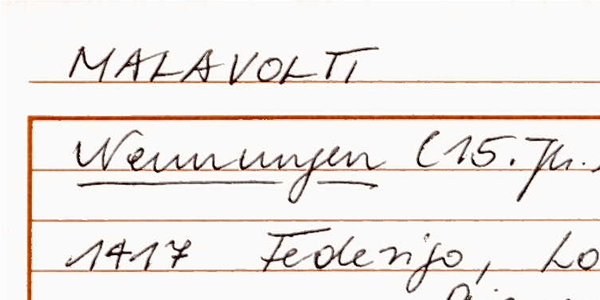 MALAVOLTI
Nennungen (15. Jh.)
1417 Federigo, Lo